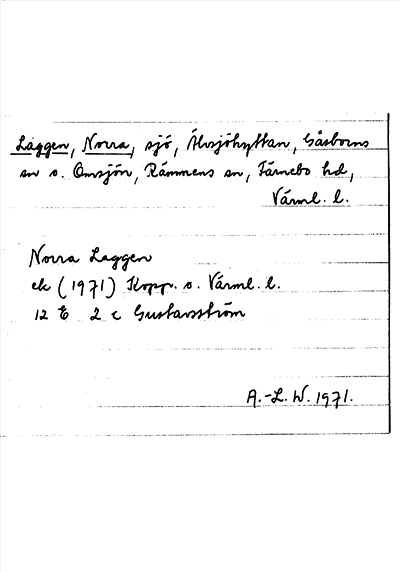 Laggen, Norra, sjö, Älvsjöhyttan, Gåsborns
sn o. Omsjön, Rämmens sn, Färnebo hd,
Värml. l.
Norra Laggen
ek (1971) Kopp. o. Värml. l.
12 E 2 c Gustavsström
A.-L. W. 1971.